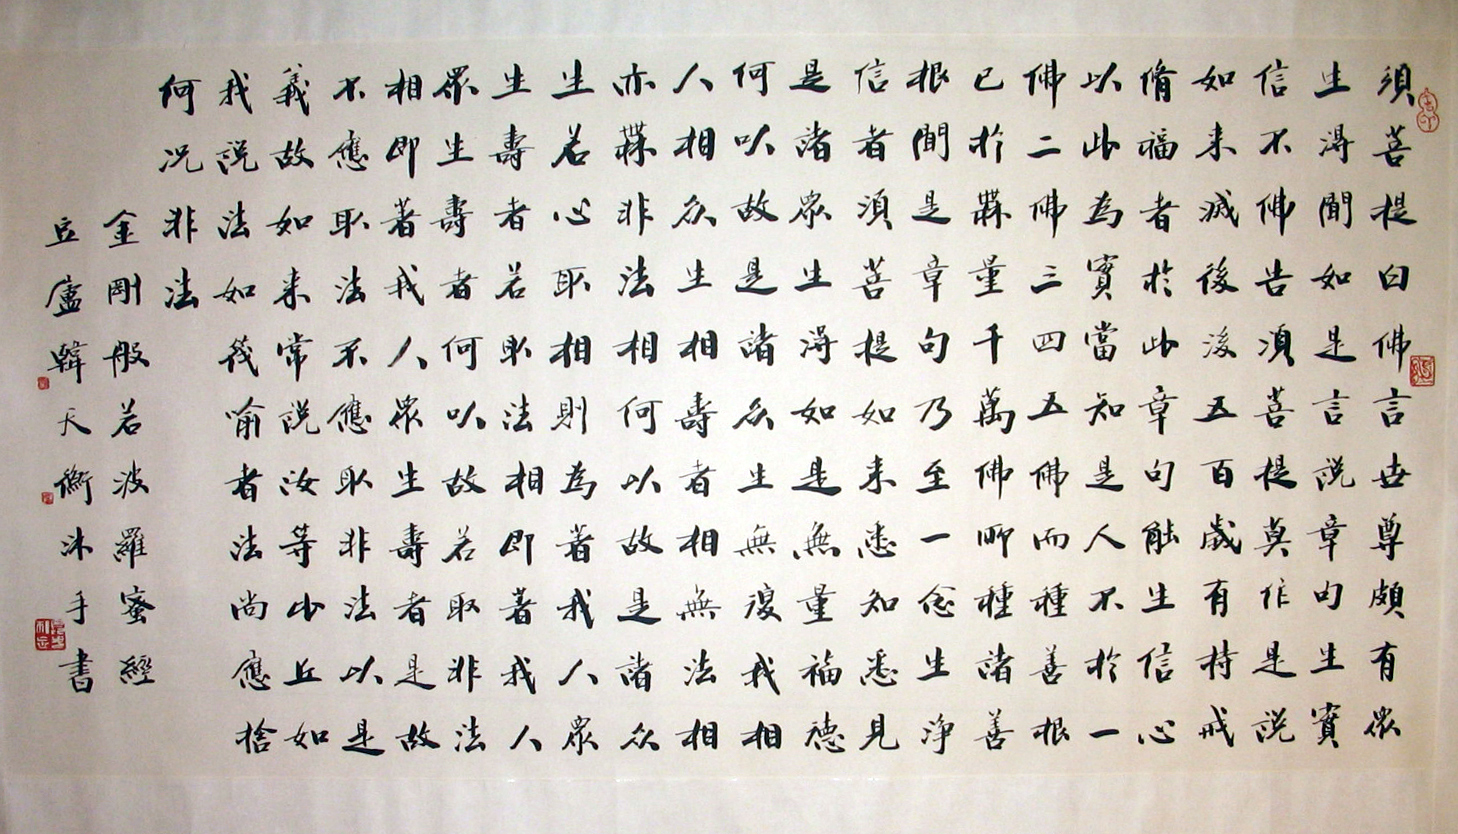 須菩提白佛言世尊頗有眾
生得聞如是言說章句生實
信不佛告須菩提莫作是說
如来滅後後五百歲有持戒
脩福者於此章句能生信心
以此為實當知是人不於一
佛二佛三四五佛而種善根
已於無量千萬佛所種諸善
根聞是章句乃至一念生淨
信者須菩提如来悉知悉見
是諸眾生得如是無量福德
何以故是諸众生無復我相
人相众生相壽者相無法相
亦無非法相何以故是諸众
生若心取相則為著我人眾
生壽者若取法相即著我人
眾生壽者何以故若取非法
相即著我人眾生壽者是故
不應取法不應取非法以是
義故如来常說汝等比丘如
我說法如筏喻者法尚應捨
何况非法
金剛般若波羅蜜經
豆廬韓天衡沐手書